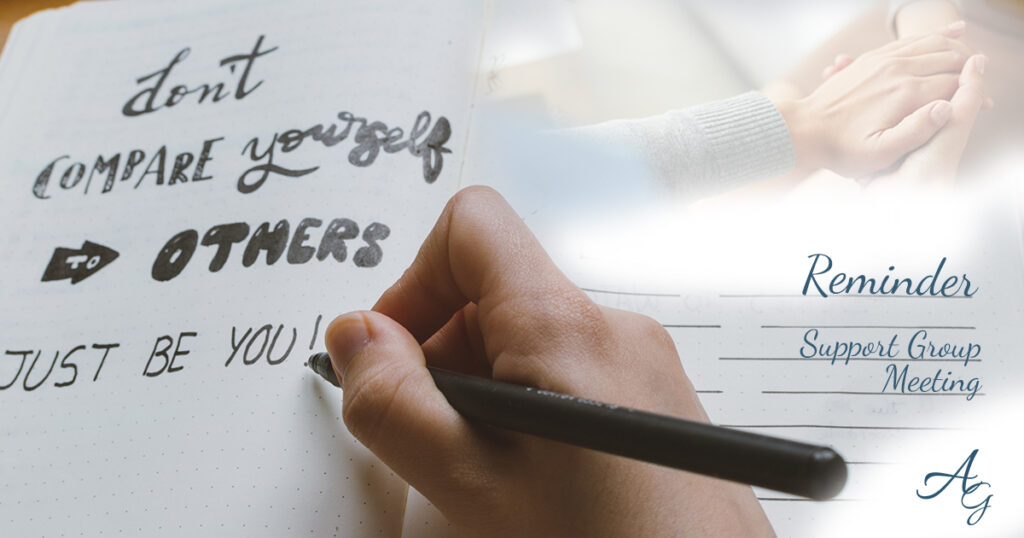 don't
COMPARE yourself
TO OTHERS
JUST BE YOU!
Reminder
Support Group
Meeting
AG